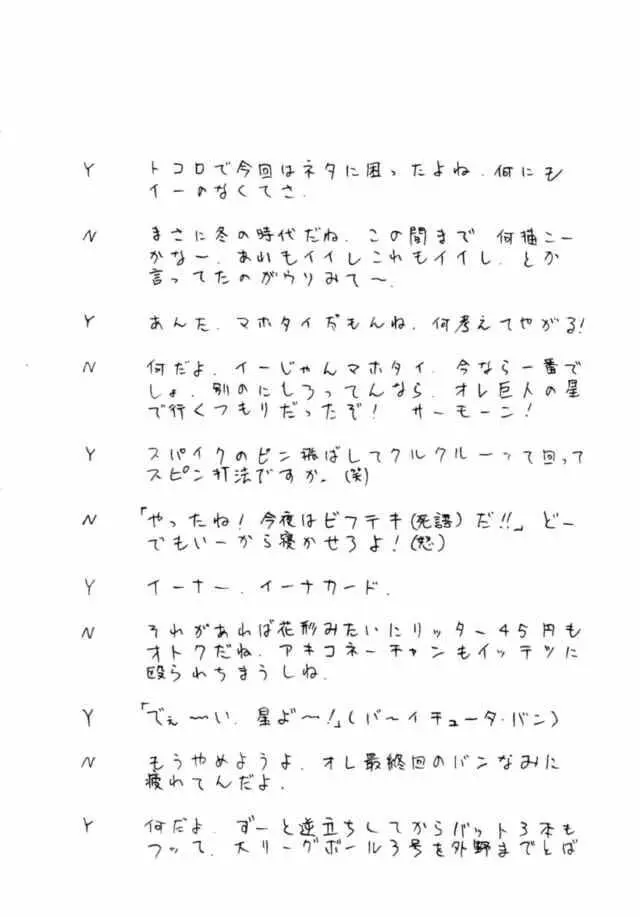 Y トコロで今回はネタに困ったよね.何にも
イーのなくてさ.
N まさに冬の時代だね.この間まで 何描こー
かなー.あれもイイしこれもイイし.とか
言ってたのがウリみて〜.
Y あんた.マホタイだもんね.何考えてやがる!
N 何だよ.イーじゃんマホタイ.今なら一番で
しょ.別のにしろってんなら.オレ巨人の星
で行くつもりだったぞ! サーモーン!
Y スパイクのピン飛ばしてクルクルーって回って
スピン打法ですか.(笑)
N 「やったね!今夜はビフテキ(死語)だ!!」どー
でもいーから寝かせろよ!(怒)
Y イーナー.イーナカード.
N それがあれば花形みたいにリッター45円も
オトクだね.アキコネーチャンもイッテツに
殴られちまうしね.
Y 「でぇ〜〜い.星よ〜!」(バ〜イチュータ・バン)
N もうやめようよ.オレ最終回のバンなみに
疲れてんだよ.
Y 何だよ.ずーと逆立ちしてからバット3本も
フッて.大リーグボール3号を外野までとば